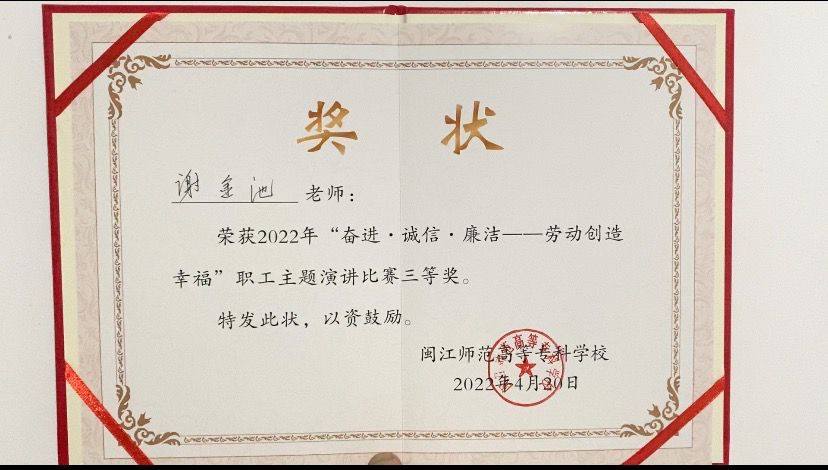 奖状
谢金池 老师：
荣获2022年“奋进·诚信·廉洁——劳动创造
幸福”职工主题演讲比赛三等奖。
特发此状，以资鼓励。
闽江师范高等专科学校
2022年4月20日